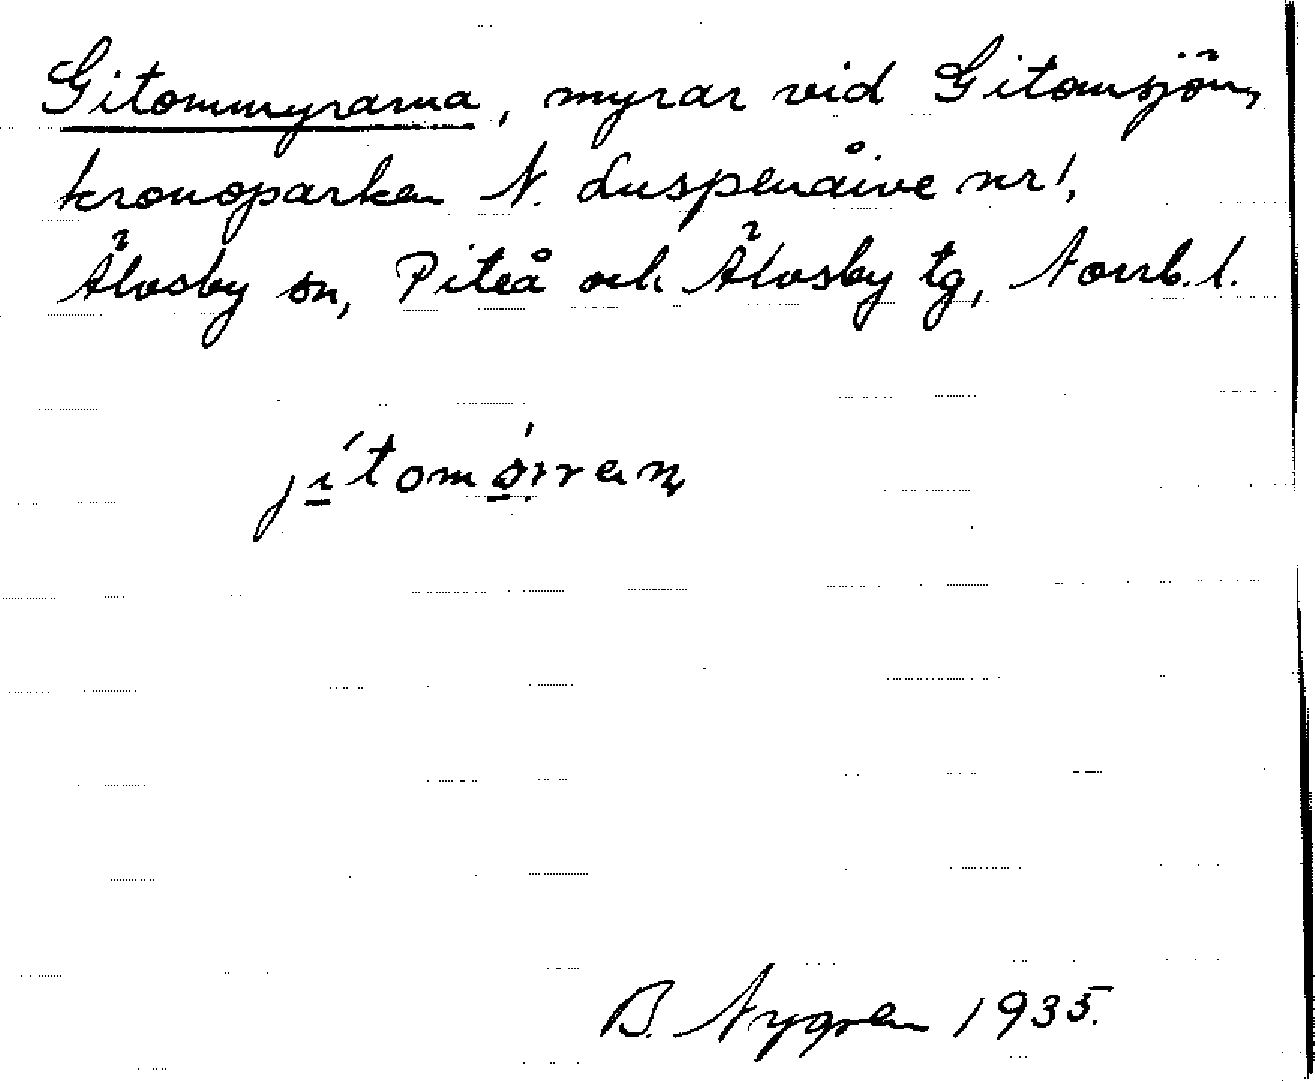 Gitommyrarna, myrar vid Gitomsjön,
kronoparken N. Luspenåive nr 1,
Älvsby sn, Piteå och Älvsby tg, Norrb. l.
B. Nygren 1935.